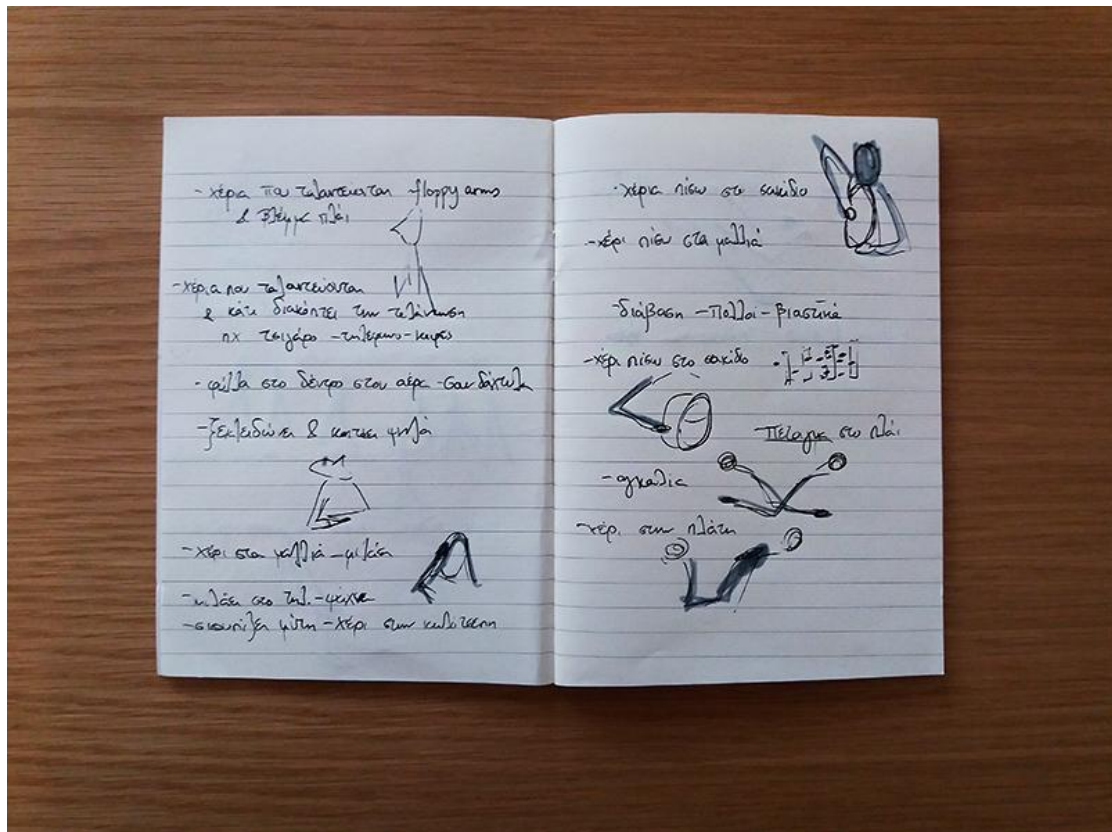 - χέρια που ταλαντεύονται - floppy arms
& βλέμμα πλάι
- χέρια που ταλαντεύονται
& κάτι διακόπτει την ταλάντωση
πχ τσιγάρο - τηλέφωνο - καφές
- φύλλα στο δέντρο στον αέρα - σαν δάχτυλα
- ξεκλειδώνει & κοιτάει ψηλά
- χέρι στα μαλλιά - μιλάει
- μιλάει στο τηλ. - ψάχνει
- σκουπίζει μύτη - χέρι στην κωλότσεπη
- χέρια πίσω στο σακίδιο
- χέρι πίσω στα μαλλιά
- διάβαση - πολλοί - βιαστικά
- χέρι πίσω στο σακίδιο
- πέταγμα στο πλάι
- αγκαλιά
- χέρι στην πλάτη